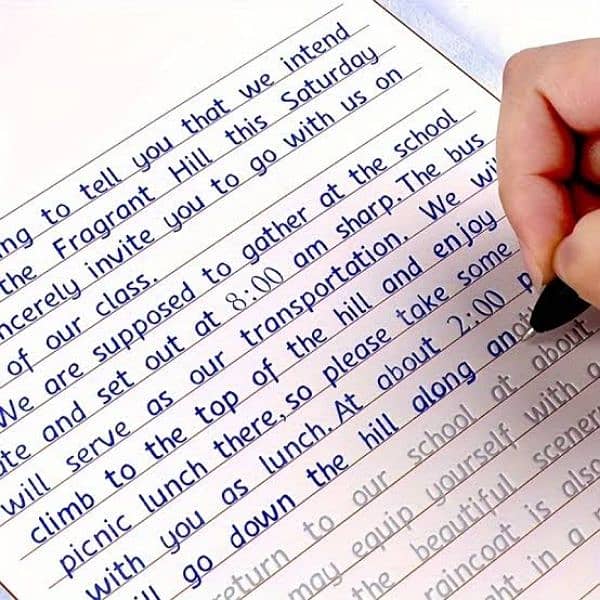 to tell you that we intend
the Fragrant Hill this Saturday
invite you to go with us on
of our class.
We are supposed to gather at the school
and set out at 8:00 am sharp. The bus
will serve as our transportation. We
climb to the top of the hill and enjoy
picnic lunch there, so please take some
with you as lunch. At about 2:00
go down the hill along
return to our school at about
may equip yourself with a
the beautiful
raincoat is also
in a